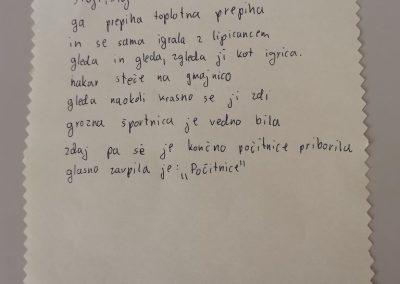 ga prepiha toplotna prepiha
in se sama igrala z lipicancem
gleda in gleda, zgleda ji kot igrica.
nakar steče na gmajnico
gleda naokoli krasno se ji zdi
grozna športnica je vedno bila
zdaj pa se je končno počitnice priborila
glasno zavpila je: „Počitnice"